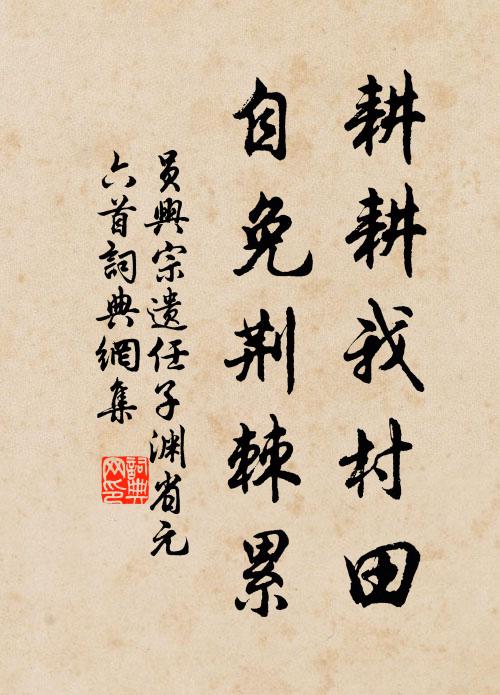 耕耕我村田
自免荆棘累
员興宗遗任子渊省元
六首詞典網集
詞典網印